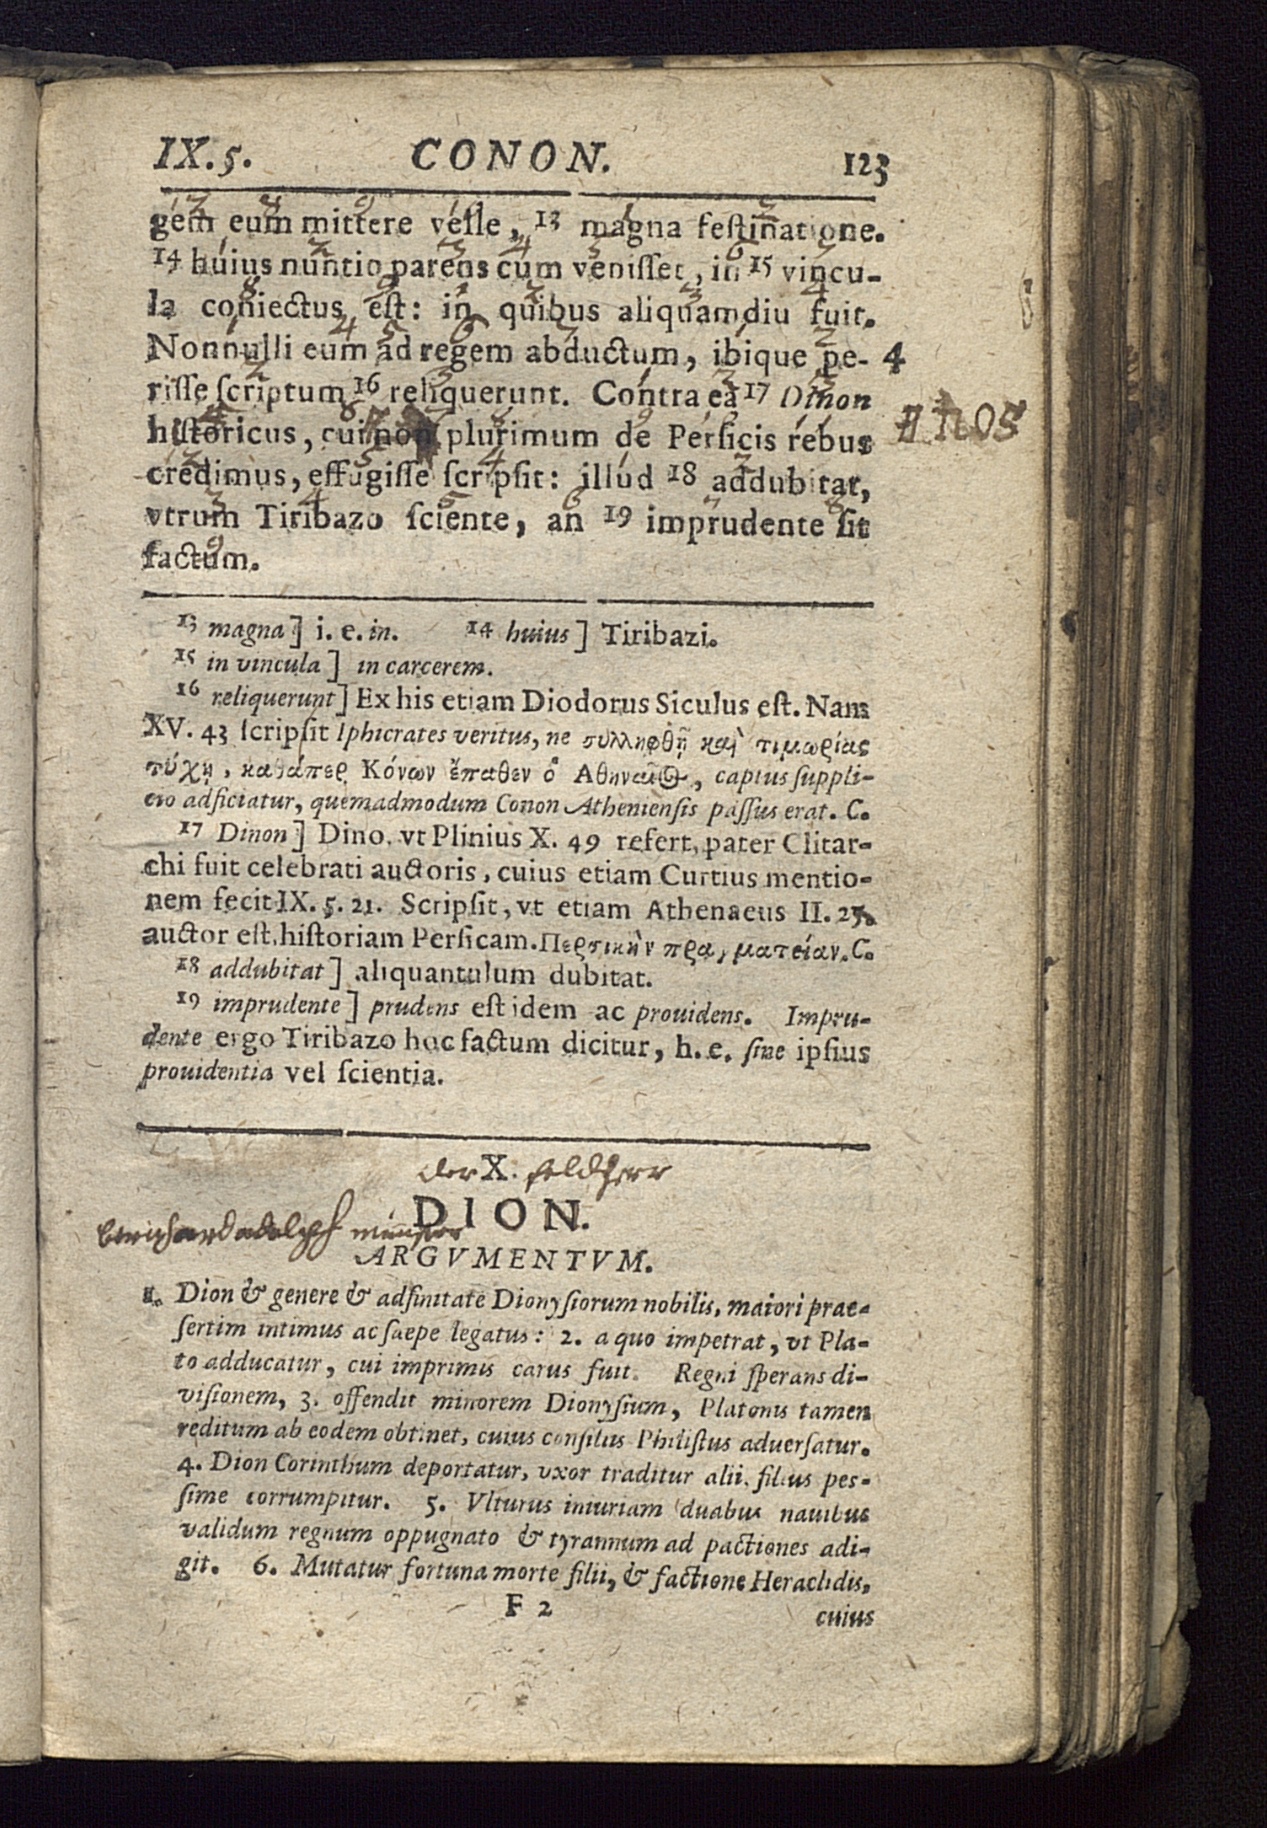 IX. 5. CONON. 123
gem eum mittere velle, 13 magna festinatione.
14 huius nuntio parens cum venisset, in 15 vincu-
la coniectus est: in quibus aliquamdiu fuit.
Nonnulli eum ad regem abductum, ibique pe- 4
risse scriptum 16 reliquerunt. Contra ea 17 Dinon
historicus, cui nos plurimum de Persicis rebus
credimus, effugisse scripsit: illud 18 addubitat,
vtrum Tiribazo sciente, an 19 imprudente sit
factum.
13 magna] i. e. in. 14 huius] Tiribazi.
15 in vincula] in carcerem.
16 reliquerunt] Ex his etiam Diodorus Siculus est. Nam
XV. 43 scripsit Iphicrates veritus, ne συλληφθῆ καὶ τιμωρίας
τύχῃ, καθάπερ Κόνων ἔπαθεν ὁ Αθηναῖος, captus suppli-
cio adficiatur, quemadmodum Conon Atheniensis passus erat. C.
17 Dinon] Dino, vt Plinius X. 49 refert, pater Clitar-
chi fuit celebrati auctoris, cuius etiam Curtius mentio-
nem fecit IX. 5. 21. Scripsit, vt etiam Athenaeus II. 25.
auctor est, historiam Persicam. Περσικὴν πραγματείαν. C.
18 addubitat] aliquantulum dubitat.
19 imprudente] prudens est idem ac prouidens. Impru-
dente ergo Tiribazo hoc factum dicitur, h. e. sine ipsius
prouidentia vel scientia.
der X. feldherr
DION.
ARGVMENTVM.
1. Dion & genere & adfinitate Dionysiorum nobilis, maiori prae-
sertim intimus ac saepe legatus: 2. a quo impetrat, vt Pla-
to adducatur, cui imprimis carus fuit. Regni sperans di-
visionem, 3. offendit minorem Dionysium, Platonis tamen
reditum ab eodem obtinet, cuius consiliis Philistus adversatur.
4. Dion Corinthum deportatur, vxor traditur alii, filius pes-
sime corrumpitur. 5. Vlturus iniuriam duabus nauibus
validum regnum oppugnato & tyrannum ad pactiones adi-
git. 6. Mutatur fortuna morte filii, & factione Heraclidis,
F 2 cuius